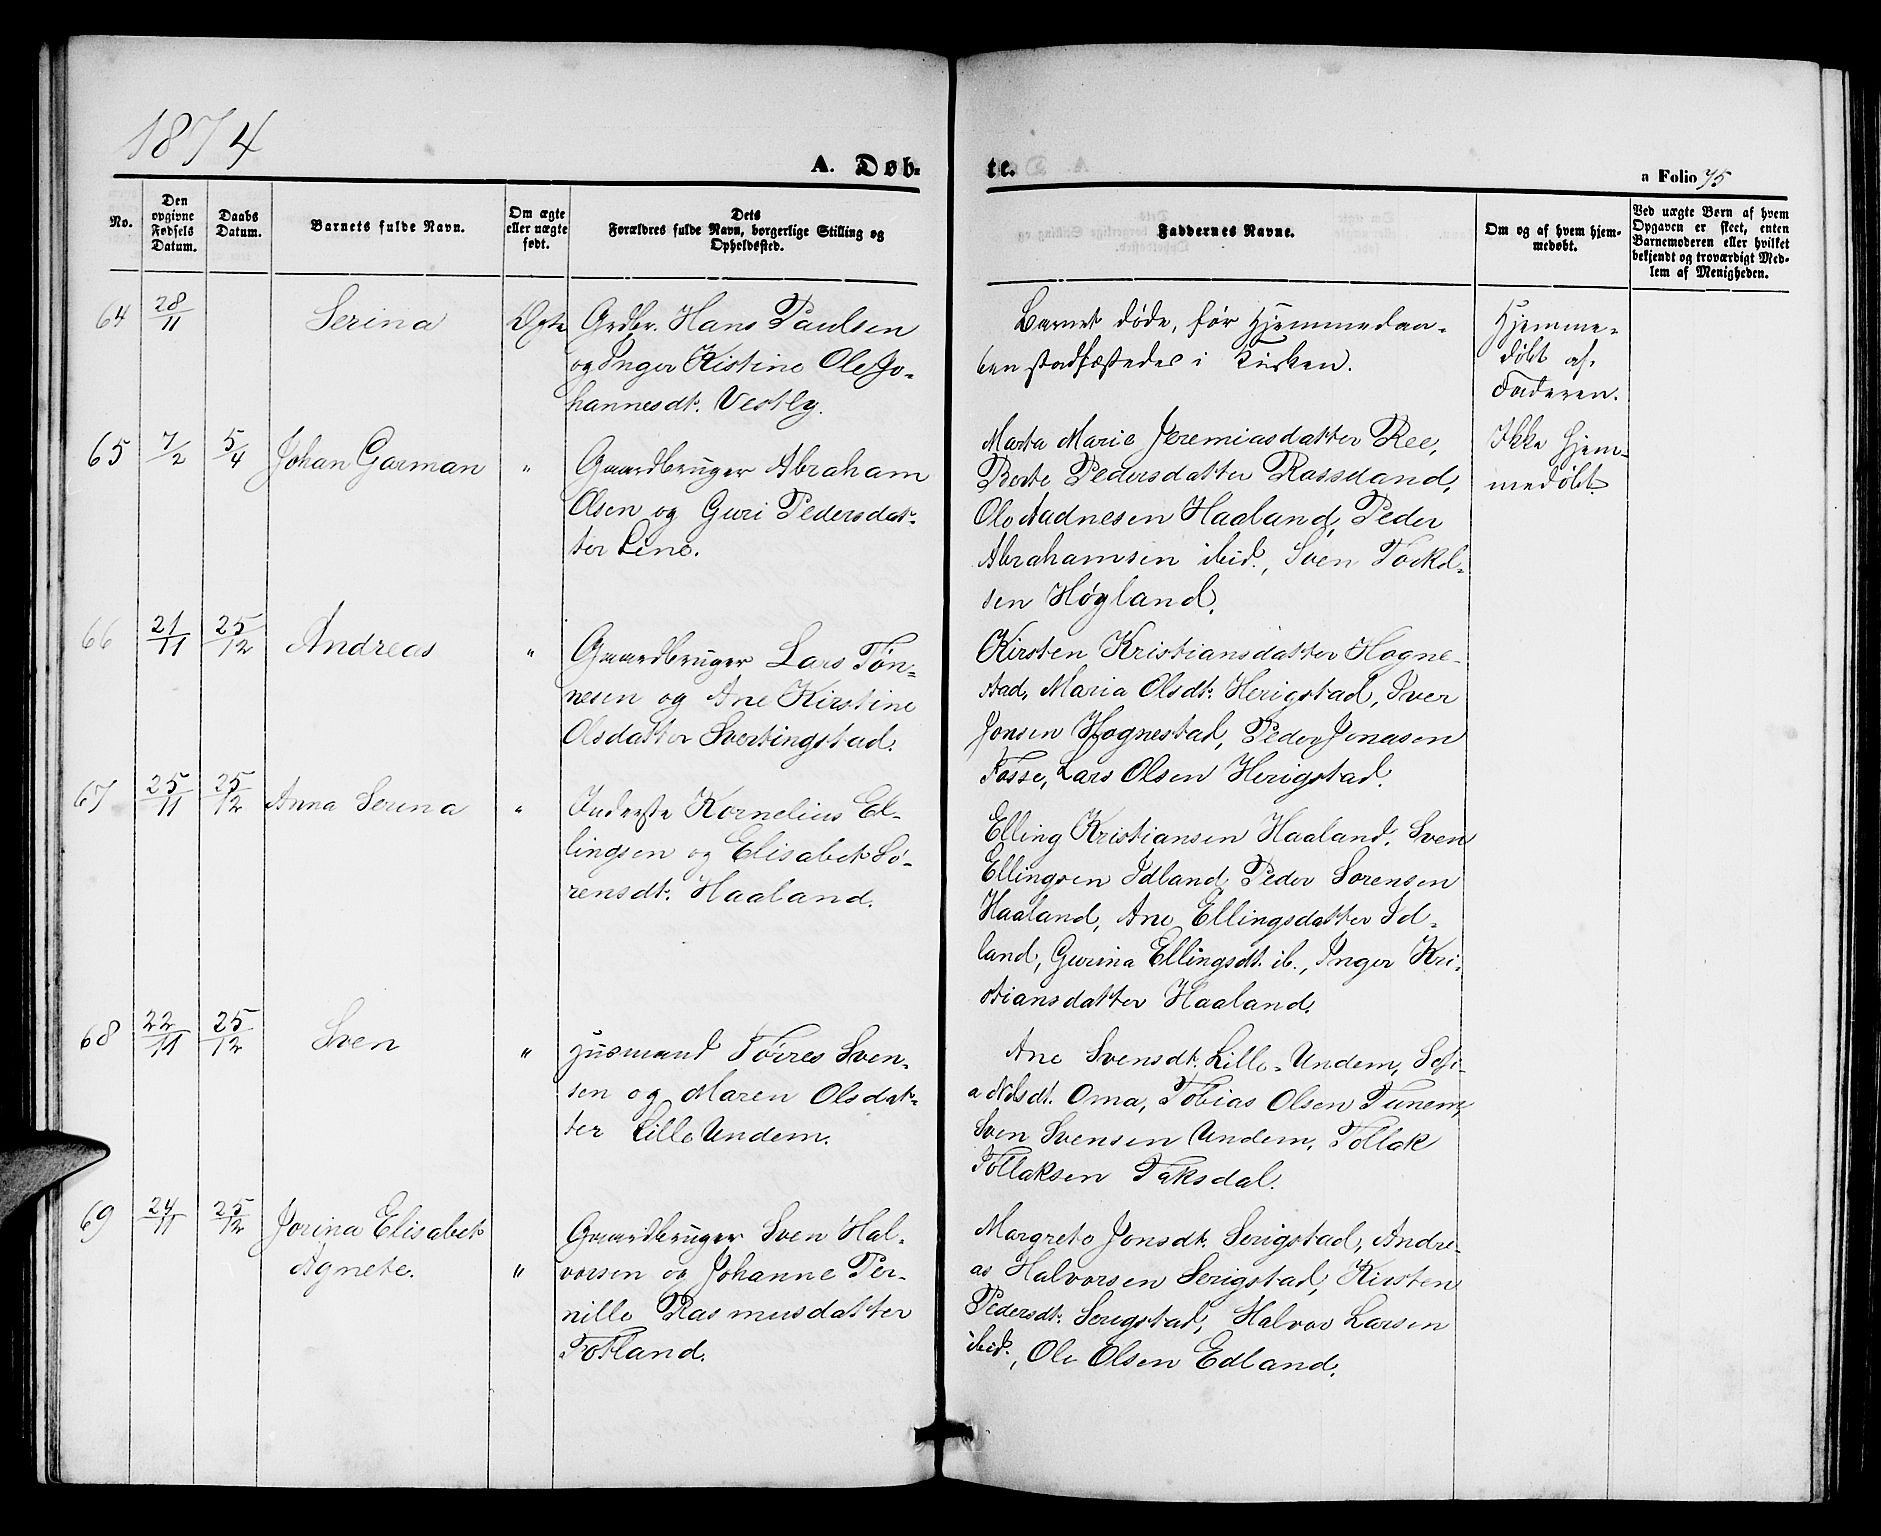 1874
A. Døb-
te.
a Folio 75
No.
Den opgivne Fødsels Datum.
Daabs Datum.
Barnets fulde Navn.
Om ægte eller uægte født.
Dets Forældres fulde Navn, borgerlige Stilling og Opholdssted.
Faddernes Navne.
Om og af hvem hjemmedøbt.
Ved uægte Børn af hvem Opgaven er skeet, enten Barnemoderen eller hvilket bekjendt og troværdigt Medlem af Menigheden.
64 28/11 Serina Ægte Grdbr. Hans Paulsen
og Inger Kistine Ole Jo-
hannesdt. Vestly.
Barnet døde, før Hjemmedaa-
ben stadfæstedes i Kirken.
Hjemme-
døbt af
Faderen.
65 7/2 5/4 Johan Garman " Gaardbruger Abraham
Olsen og Guri Pedersdat-
ter Line.
Marta Marie Jeremiasdatter Ree,
Berte Pedersdatter Rossdand,
Ole Aadnesen Haaland, Peder
Abrahamsen ibid., Sven Torkel-
sen Høgland.
Ikke hjem-
medøbt.
66 21/11 25/12 Andreas " Gaardbruger Lars Tøn-
nesen og Ane Kirstine
Olsdatter Svertingstad.
Kirsten Kristiansdatter Hogne-
stad, Maria Olsdt. Herigstad, Iver
Jonsen Hognestad, Peder Jonasen
Fosse, Lars Olsen Herigstad.
67 25/11 25/12 Anna Serina " Inderste Kornelius El-
lingsen og Elisabet Sø-
rensdt. Haaland.
Elling Kristiansen Haaland, Sven
Ellingsen Idland, Peder Sorensen
Haaland, Ane Ellingsdatter Id-
land, Gurina Ellingsdt. ib., Inger Kri-
stiansdatter Haaland.
68 22/11 25/12 Sven " Husmand Tørres Sven-
sen og Maren Olsdat-
ter Lille Undem.
Ane Svensdt. Lille-Undem, Sofi-
a Nilsdt. Oma, Tobias Olsen Tunem,
Sven Svensen Undem, Tollak
Tollaksen Taksdal.
69 24/11 25/12 Jorina Elisabet
Agnete. " Gaardbruger Sven Hal-
vorsen og Johanne Per-
nille Rasmusdatter
Totland.
Margrete Jonsdt. Serigstad, Andre-
as Halvorsen Serigstad, Kirsten
Pedersdt. Serigstad, Halvor Larsen
ibid., Ole Olsen Edland.